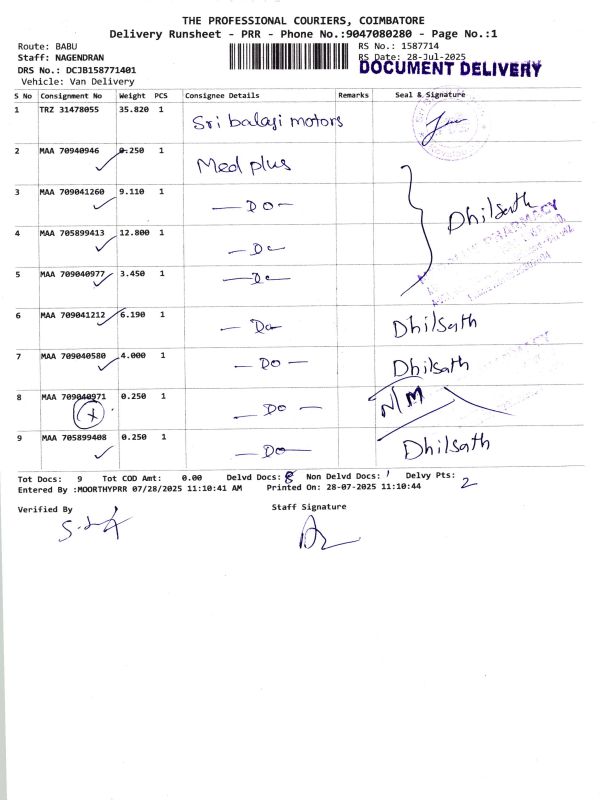 THE PROFESSIONAL COURIERS, COIMBATORE
Delivery Runsheet - PRR - Phone No.:9047080280 - Page No.:1
Route: BABU RS No.: 1587714
Staff: NAGENDRAN RS Date: 28-Jul-2025
DRS No.: DCJB158771401 DOCUMENT DELIVERY
Vehicle: Van Delivery
S No Consignment No Weight PCS Consignee Details Remarks Seal & Signature
1 TRZ 31478055 35.820 1 Sri balaji motors
2 MAA 70940946 0.250 1 Med plus
3 MAA 709041260 9.110 1 — DO — Dhilsath
4 MAA 705899413 12.800 1 — Do
5 MAA 709040977 3.450 1 — Do
6 MAA 709041212 6.190 1 — Do — Dhilsath
7 MAA 709040580 4.000 1 — DO — Dhilsath
8 MAA 709040971 0.250 1 — DO — N/M
9 MAA 705899408 0.250 1 — DO — Dhilsath
Tot Docs: 9 Tot COD Amt: 0.00 Delvd Docs: 8 Non Delvd Docs: 1 Delvy Pts: 2
Entered By :MOORTHYPRR 07/28/2025 11:10:41 AM Printed On: 28-07-2025 11:10:44
Verified By Staff Signature